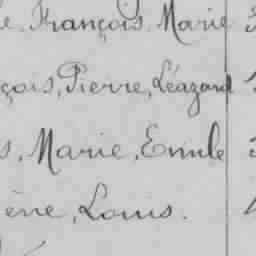 e François Marie
çois, Pierre, Léazard
s, Marie, Emile
ène, Louis.